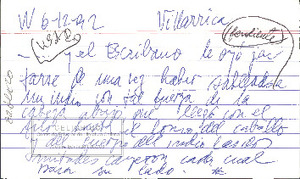 W 6-12-92 Villarrica
(bandidaje)
- y el Escribano le oyó jac
tarse de una vez haber sableado
un indio con tal fuerza de la
cabeza abajo que llegó con el
filo hasta el lomo del caballo
y del cuerpo del indio las dos
mitades cayeron cada cual
para su lado. #